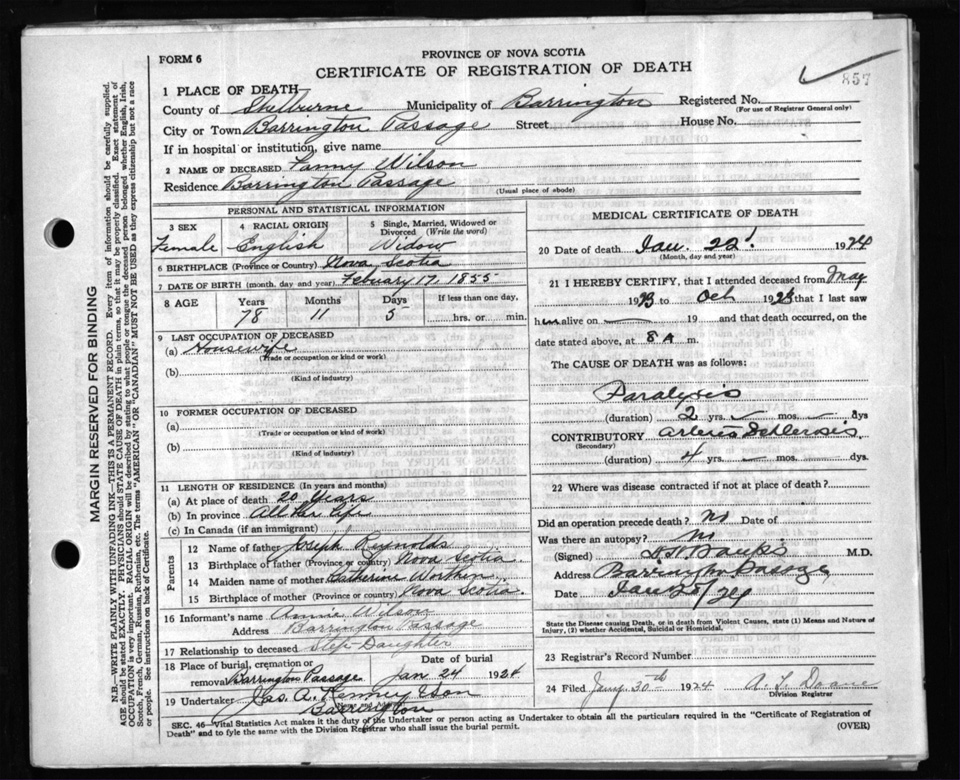 FORM 6
PROVINCE OF NOVA SCOTIA
CERTIFICATE OF REGISTRATION OF DEATH
857
1 PLACE OF DEATH
County of Shelburne Municipality of Barrington Registered No.
(For use of Registrar General only)
City or Town Barrington Passage Street House No.
If in hospital or institution, give name
2 NAME OF DECEASED Fanny Wilson
Residence Barrington Passage (Usual place of abode)
PERSONAL AND STATISTICAL INFORMATION
3 SEX 4 RACIAL ORIGIN 5 Single, Married, Widowed or Divorced (Write the word)
Female English Widow
6 BIRTHPLACE (Province or Country) Nova Scotia
7 DATE OF BIRTH (month, day and year) Febuary 17, 1855
8 AGE Years Months Days If less than one day,
78 11 5 hrs. or min.
9 LAST OCCUPATION OF DECEASED
(a) Housewife
(Trade or occupation or kind or work)
(b)
(Kind of industry)
10 FORMER OCCUPATION OF DECEASED
(a)
(Trade or occupation or kind of work)
(b)
(Kind of industry)
11 LENGTH OF RESIDENCE (In years and months)
(a) At place of death 20 Years
(b) In province All Her Life
(c) In Canada (if an immigrant)
Parents
12 Name of father Joseph Reynolds
13 Birthplace of father (Province or country) Nova Scotia
14 Maiden name of mother Catherine Worthin
15 Birthplace of mother (Province or country) Nova Scotia
16 Informant's name Annie Wilson
Address Barrington Passage
17 Relationship to deceased Step Daughter
18 Place of burial, cremation or Date of burial
removal Barrington Passage Jan 24 1924
19 Undertaker Jas. A. Kenney & Son
Barrington
MEDICAL CERTIFICATE OF DEATH
20 Date of death Jan. 22 1924
(Month, day and year)
21 I HEREBY CERTIFY, that I attended deceased from May
1923 to Oct 1923 that I last saw
h alive on 19 and that death occurred, on
date stated above, at 8 A m.
The CAUSE OF DEATH was as follows:
Paralysis
(duration) 2 yrs. mos. dys
CONTRIBUTORY Arterio Schlerosis
(Secondary)
(duration) 4 yrs. mos. dys
22 Where was disease contracted if not at place of death?
Did an operation precede death? No Date of
Was there an autopsy? No
(Signed) M.D.
Address Barrington Passage
Date Jan
State the Disease causing Death, or in death from Violent Causes, state (1) Means and Nature of Injury, (2) whether Accidental, Suicidal or Homicidal.
23 Registrar's Record Number
24 Filed Jany. 30th 1924 Doane
Division Registrar
SEC. 46—Vital Statistics Act makes it the duty of the Undertaker or person acting as Undertaker to obtain all the particulars required in the "Certificate of Registration of
Death" and to fyle the same with the Division Registrar who shall issue the burial permit. (OVER)
MARGIN RESERVED FOR BINDING
N.B.—WRITE PLAINLY WITH UNFADING INK—THIS IS A PERMANENT RECORD. Every item of information should be carefully supplied.
AGE should be stated EXACTLY. PHYSICIANS should STATE CAUSE OF DEATH in plain terms, so that it may be properly classified. Exact statement of
OCCUPATION is very important. RACIAL ORIGIN will be described by stating to what people or tongue the deceased person belonged whether English, Irish,
Scotch, French, German, Russian, Ruthenian, etc. The terms "AMERICAN" or "CANADIAN" MUST NOT BE USED as they express citizenship but not a race
or people. See instructions on back of Certificate.